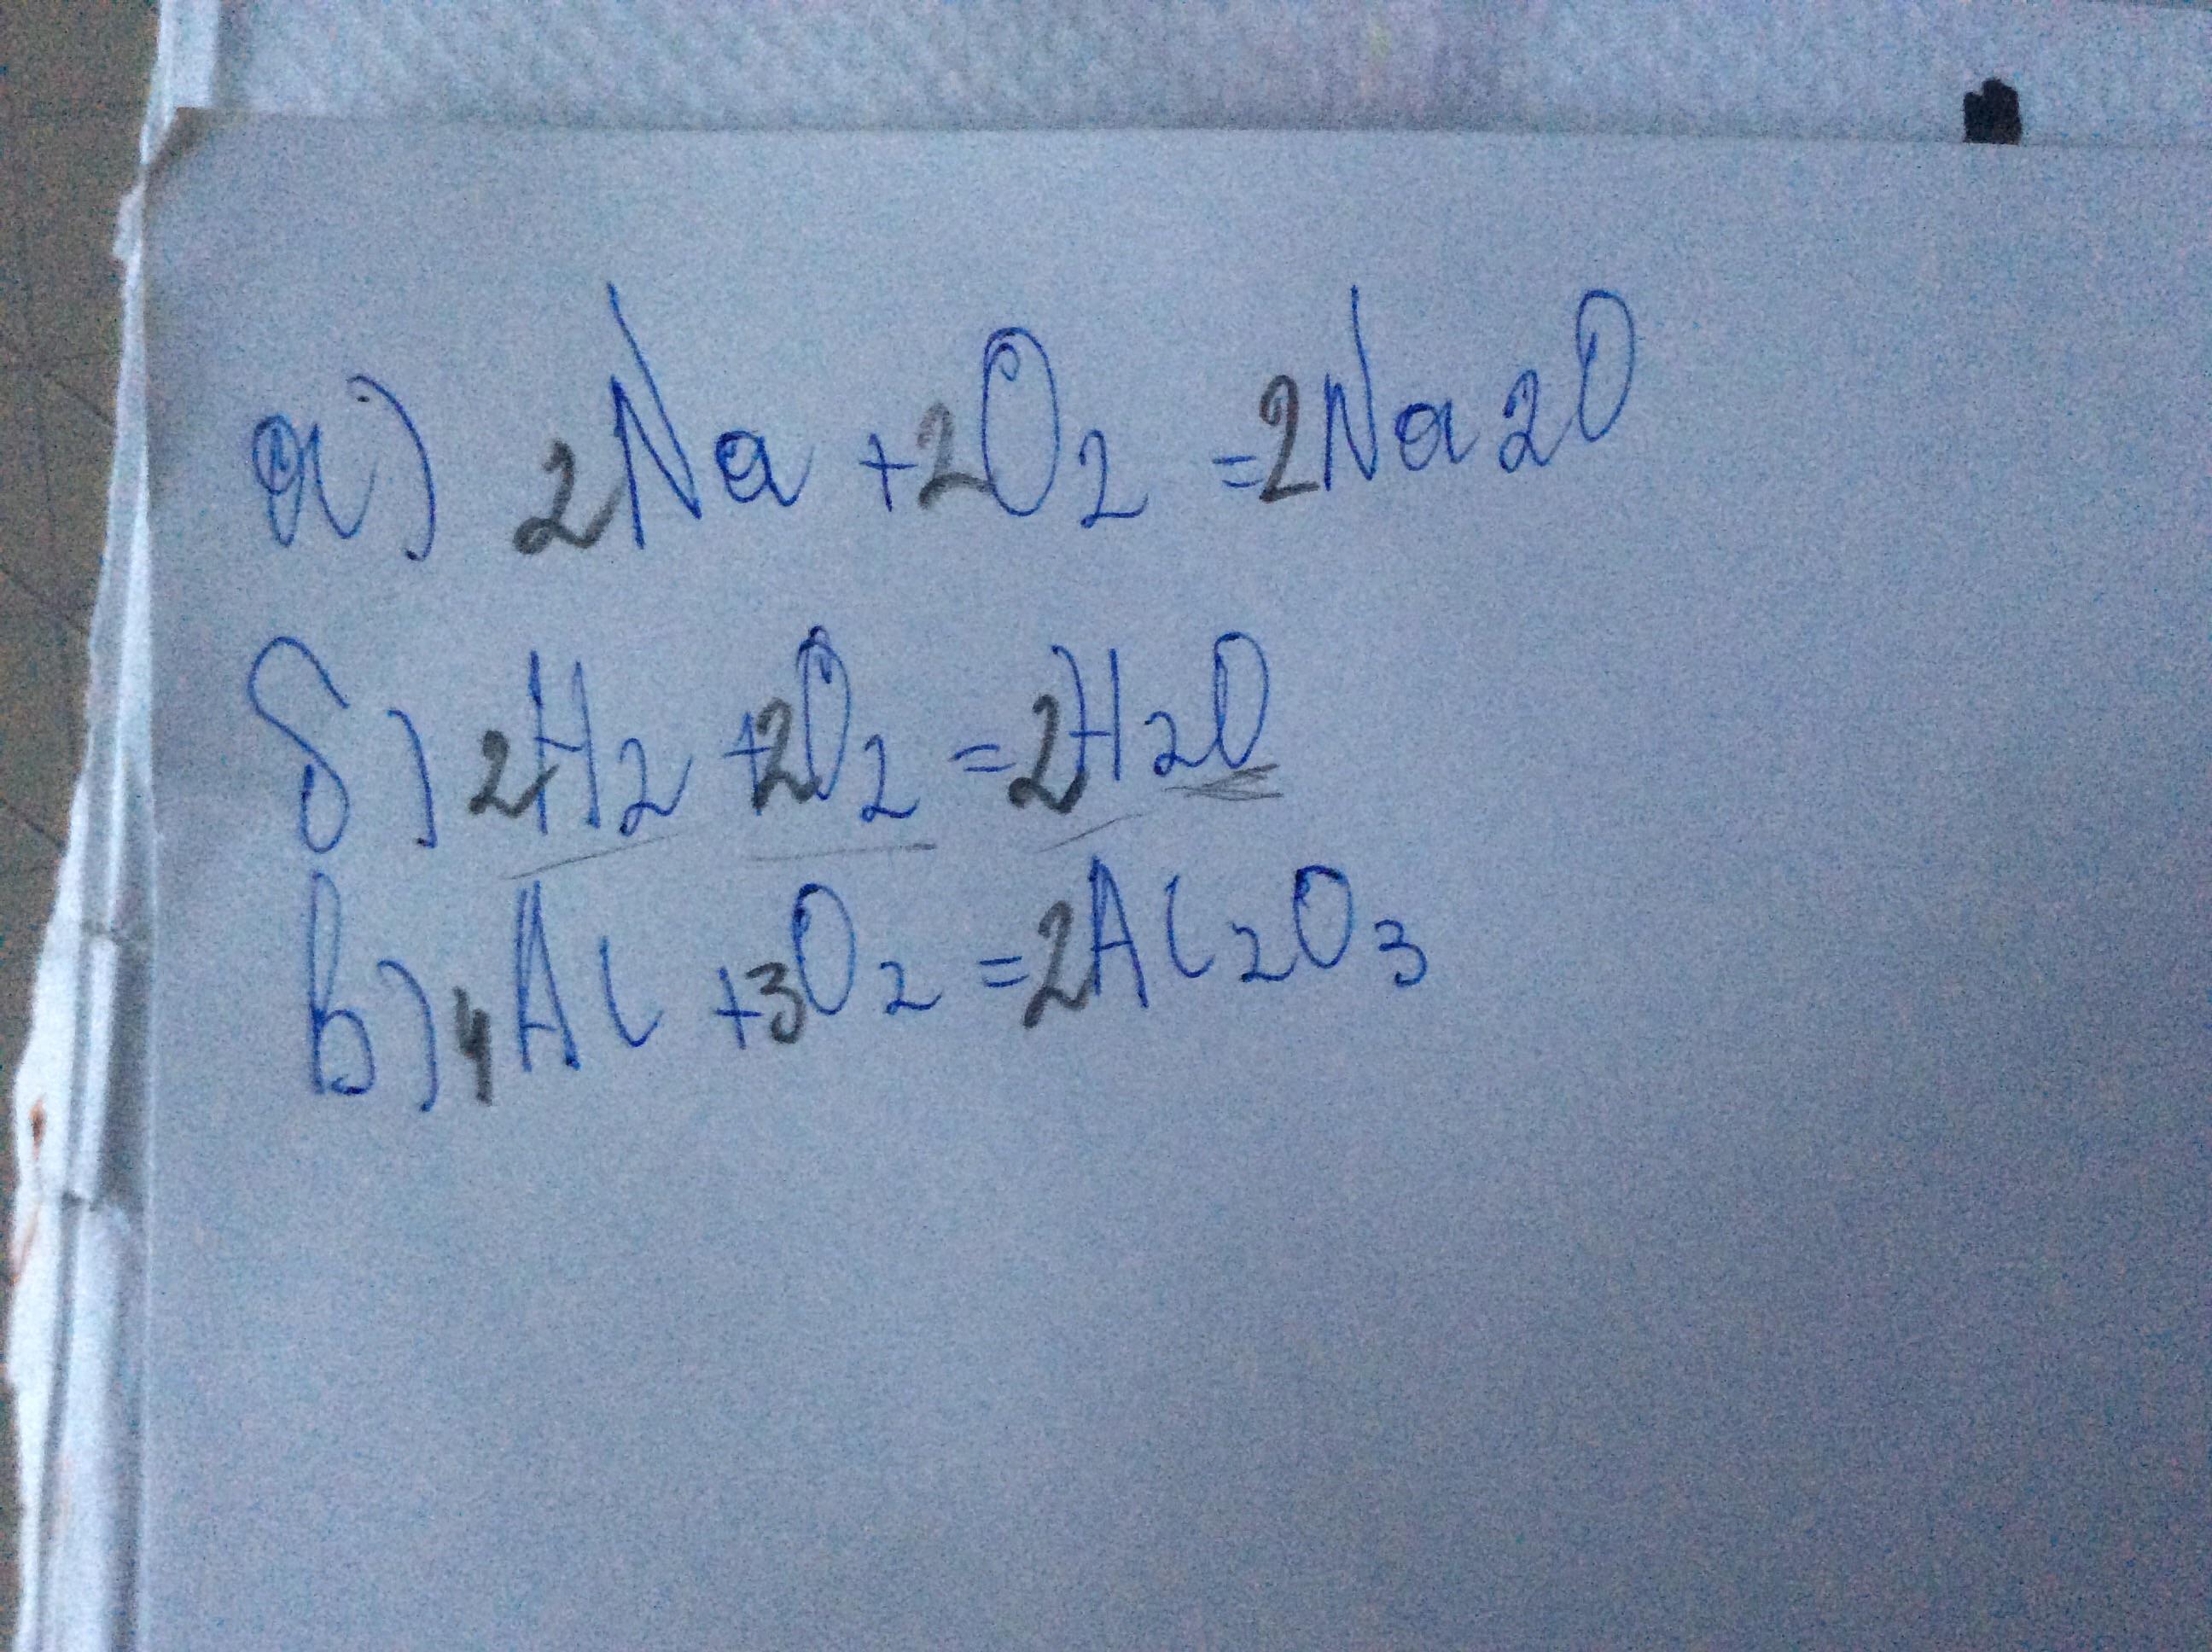 а) 2Na + 2O2 = 2Na2O
б) 2H2 + 2O2 = 2H2O
в) 4Al + 3O2 = 2Al2O3